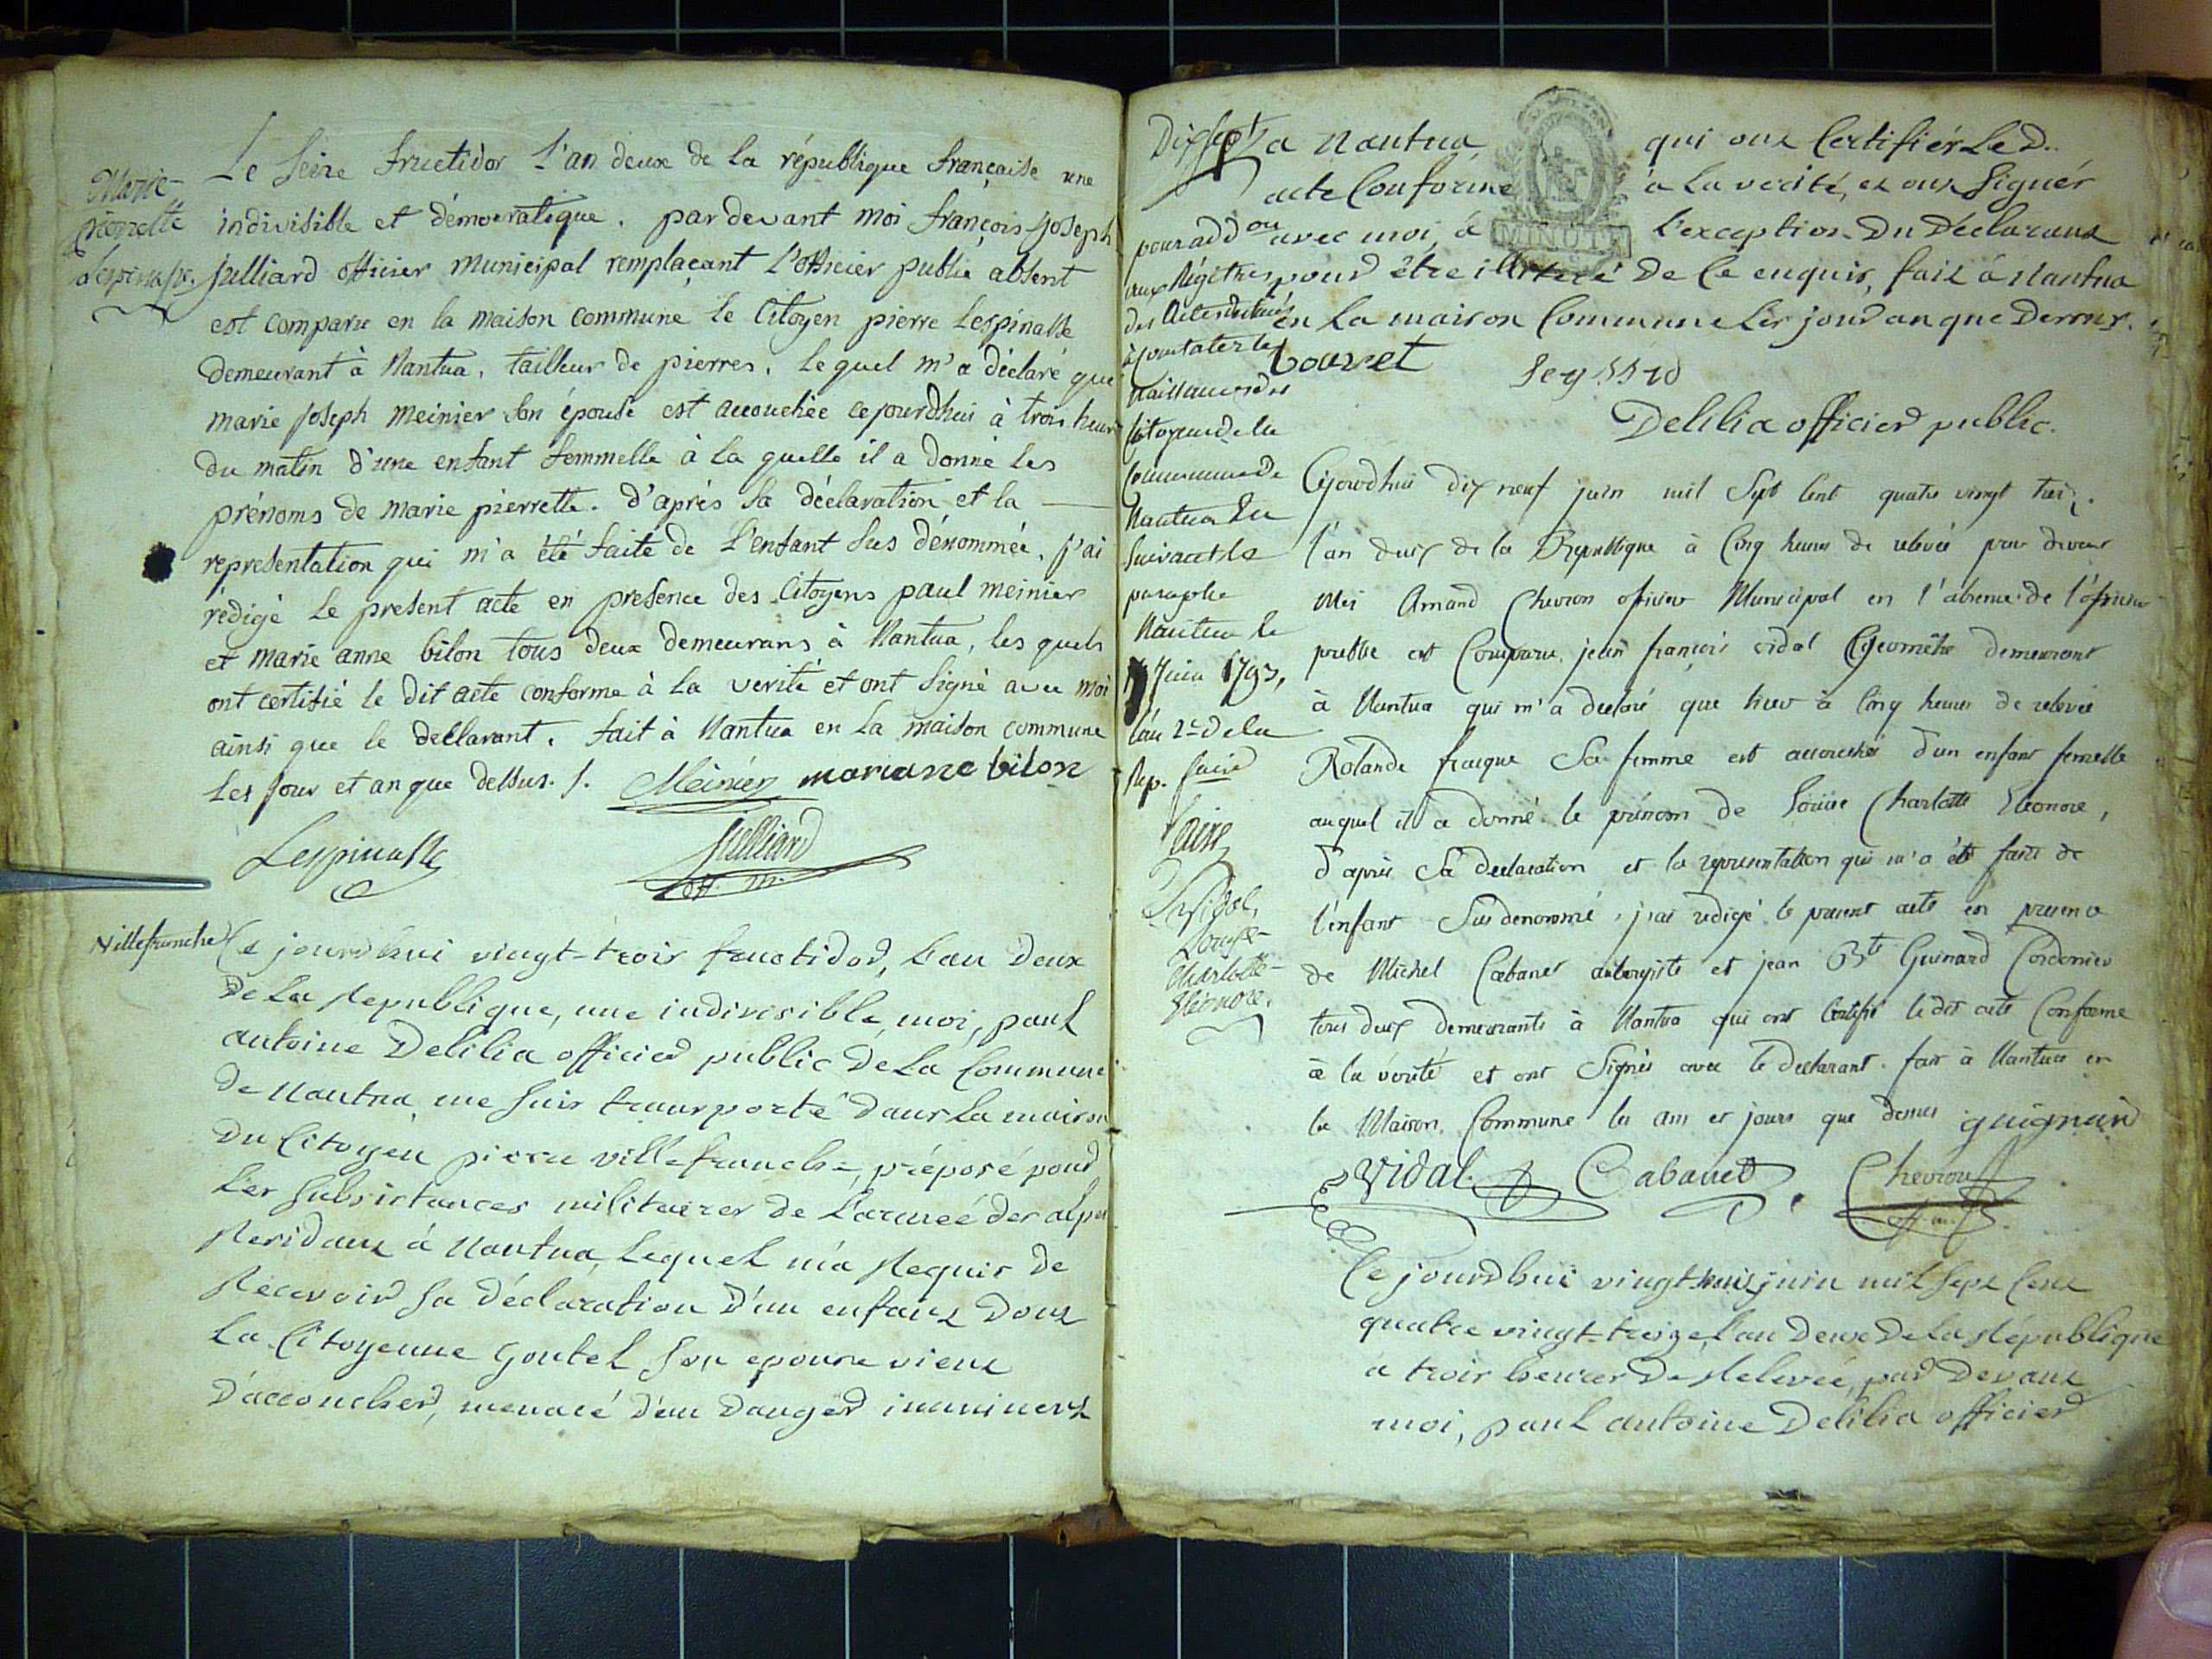 Marie-
pierrette
Lespinasse.
Le seize fructidor L'an deux de la république française une
indivisible et démocratique. par devant moi françois joseph
Julliard officier municipal remplaçant L'officier public absent
est comparu en la maison commune le Citoyen pierre Lespinasse
demeurant à Nantua, tailleur de pierres, lequel m'a déclaré que
marie joseph meinier son épouse est accouchée cejourdhui à trois heures
du matin d'une enfant femmelle à la quelle il a donné les
prénoms de marie pierrette. d'après sa déclaration et la
representation qui m'a été faite de L'enfant sus dénommée, j'ai
rédigé le present acte en presence des Citoyens paul meinier
et marie anne bilon tous deux demeurans à Nantua, les quels
ont certifié le dit acte conforme à la verité et ont signé avec moi
ainsi que le declarant. fait à Nantua en la maison commune
les jour et an que dessus. /. Meinier marianne bilon
Lespinasse Julliard
off. m.
Villefranche
Ce jourdhui vingt-trois fructidor, L'an deux
de La Republique, une indivisible, moi, paul
antoine Delilia officier public de La Commune
de Nantua me suis transporté dans La maison
Du Citoyen pierre villefranche, préposé pour
Les subsistances militaires de L'armée des alpes
Residant à Nantua, Lequel m'a Requis de
Recevoir sa déclaration d'un enfant dont
La Citoyenne goutel son epouse vient
D'accoucher, menacé d'un danger imminent
Dix sept a Nantua qui ont Certifiér Le D..
acte Conforme à La verité, et ont signér
avec moi, à L'exception Du Déclarant
MINUTE
pour être illiteré De Ce enquis, fait à Nantua
en La maison Commune Les jour an que Dessus.
bouvet
Delilia officier public.
pour add ou
aux Régitres
des Actes destinés
à constater les
naissances des
Citoyens de la
Commune de
Nantua
suivant le
paraphe
Nantua le
Juin 1793,
l'an 2e de la
Rep.
Vidal,
Louise-
Charlotte-
Eleonore.
Cejourdhui dix neuf juin mil sept cent quatre vingt treiz.
l'an deux de la Republique à Cinq heures de relevée par devant
Moi Amand Chevron officier Municipal en l'absence de l'officier
public est Comparu jean françois vidal Géomêtre demeurant
à Nantua qui m'a declaré que hier à Cinq heures de relevée
Rolande fraque Sa femme est accouchée d'un enfant femelle
auquel il a donné le prénom de Louise Charlotte Eleonore,
d'après Sa declaration et la representation qui m'a été faite de
l'enfant Susdenommé, j'ai redigé le present acte en presence
de Michel Cabanet aubergiste et jean Bte Guinard Cordonier
tous deux demeurants à Nantua qui ont Certifié ledit acte Conforme
à la vérité et ont Signés avec le declarant. fait à Nantua en
la Maison Commune les an et jours que dessus guignard
Vidal Cabanet Chevron
Ce jourdhui vingt trois juin mil sept Cent
quatre vingt-treize, L'an Deux De La République
a trois heures De Relevée, par Devant
moi, paul antoine Delilia officier